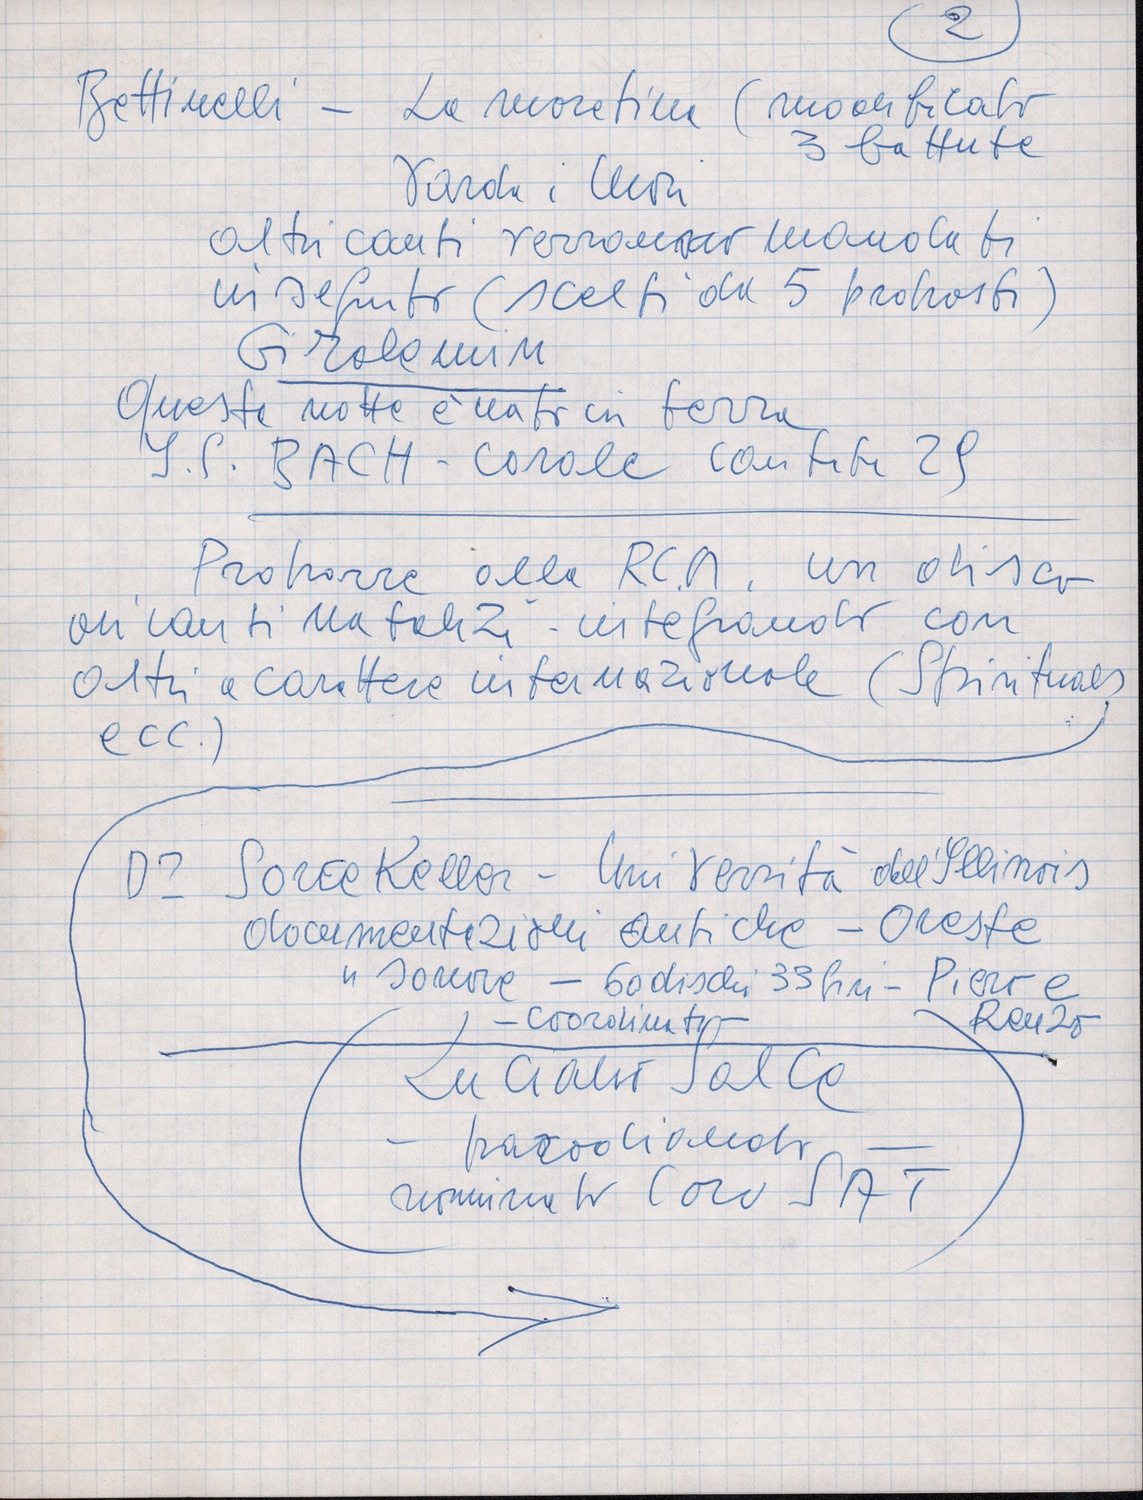 2
Bettinelli - La moretina (modificato
3 battute
Varda i
altri canti verranno mandati
in seguito (scelti da 5 proposti)
Girolemin
Questa notte è nato in terra
J.S. BACH - Corale cantata 29
Proporre alla RCA. un disco
di canti natalizi - integrando con
altri a carattere internazionale (Spirituals
ecc.)
D? Sorce Keller - Università dell'Illinois
documentazioni antiche - Oreste
" sonore - 60 dischi 33 giri - Piero e
- coordinator - Renzo
Luciano Salce
- parodiando -
nominato Coro SAT